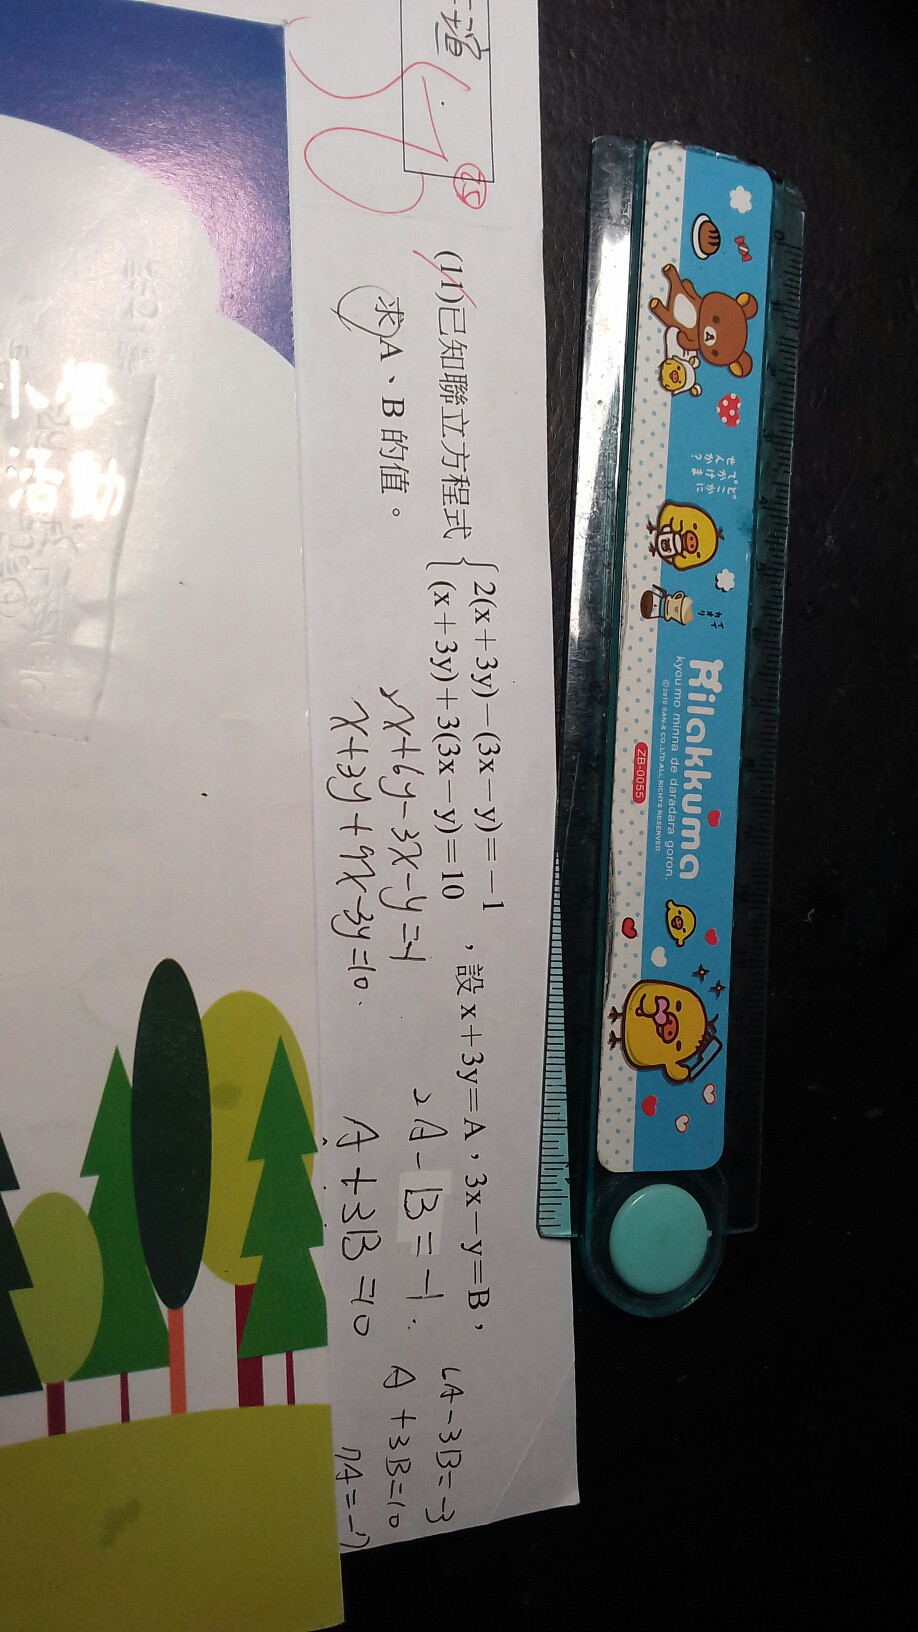 (11)已知聯立方程式 { 2(x+3y)-(3x-y)=-1
(x+3y)+3(3x-y)=10
,設 x+3y=A,3x-y=B,
求A、B 的值。
2x+6y-3x-y=-1
x+3y+9x-3y=10
2A-B=-1
A+3B=10
6A-3B=-3
A+3B=10
7A=-7
25
どこかに
でかけま
せんか?
Rilakkuma
kyou mo minna de daradara goron.
©2010 SAN-X CO.,LTD.ALL RIGHTS RESERVED.
ZB-0055
小學
活動